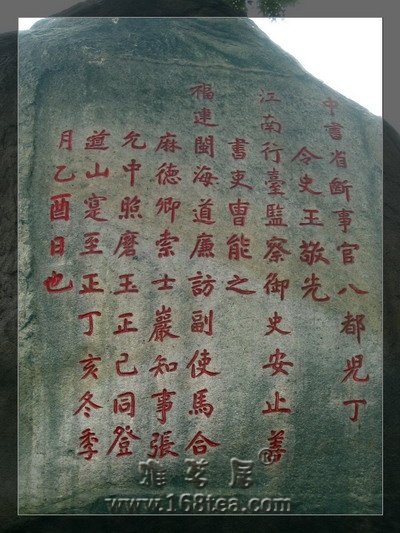 中書省斷事官八都児丁
令史王敬先
江南行臺監察御史安止善
書吏曺能之
福建閩海道廉訪副使馬合
麻德卿索士巖知事張
允中照磨玉正己同登
道山寔至正丁亥冬季
月乙酉日也
雅茗居
www.168tea.com